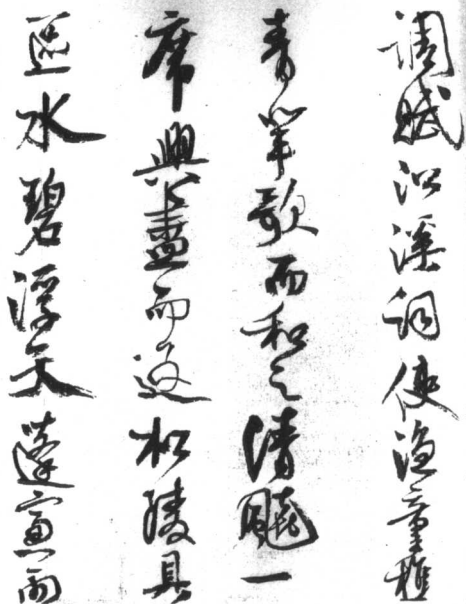 調賦沿溪詞使漁童樵
青輩歌而和之清飈一
席興盡而返松陵具
區水碧浮天蓬窗雨